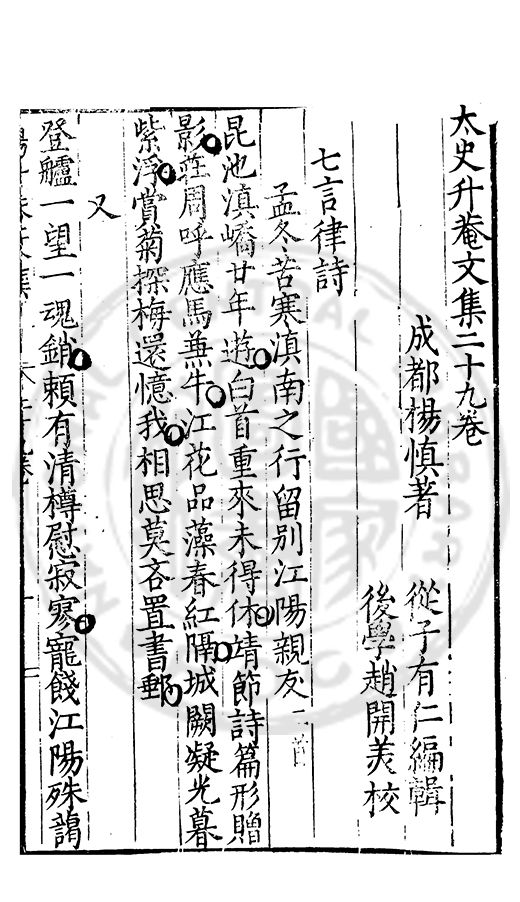 太史升菴文集二十九卷
成都楊慎著
從子有仁編輯
後學趙開美校
七言律詩
孟冬苦寒滇南之行留别江陽親友二首
昆池滇嶠廿年遊白首重來未得休靖節詩篇形贈
影莊周呼應馬兼牛江花品藻春紅隔城闕凝光暮
紫浮賞菊探梅還憶我相思莫吝置書郵
又
登艫一望一魂銷賴有清樽慰寂寥寵餞江陽殊謁